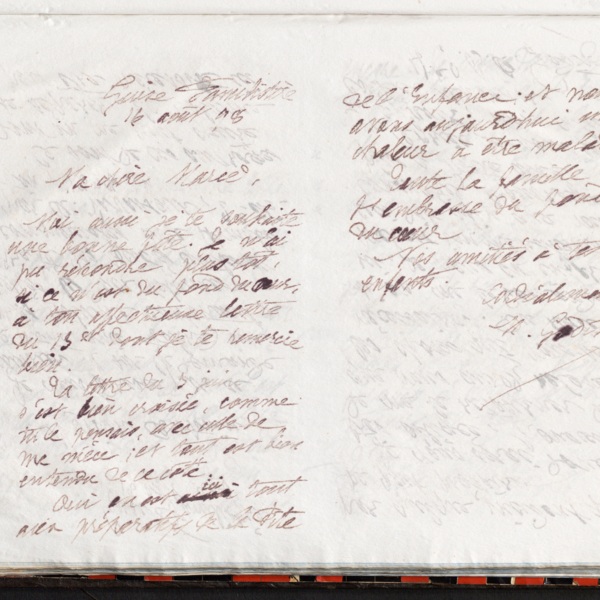 Guise Familistère
16 août 98
Ma chère Marie,
Moi aussi je te souhaite
une bonne fête. Je n'ai
pu répondre plus tôt
si ce n'est du fond du cœur,
à ton affectueuse lettre
du 13 et dont je te remercie
bien.
La lettre du 3 juin
s'est bien croisée, comme
tu le pensais, avec celle de
ma nièce ; et tout est bien
entendu de ce côté.
Oui on est ici tout
aux préparatifs de la fête
de l'Enfance. et nous
avons aujourd'hui une
chaleur à être malade
Toute la famille
t'embrasse du fond
du cœur
Mes amitiés à tes
enfants.
Cordialement